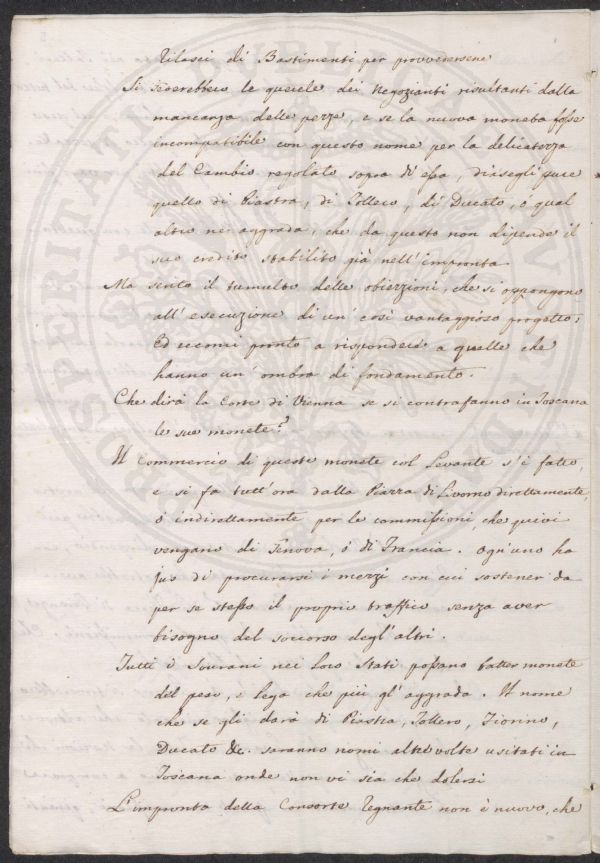 rilasci di Bastimenti per provvedersene
Si sederebbero le querele dei Negozianti risultanti dalla
mancanza delle pezze, e se la nuova moneta fosse
incompatibile con questo nome per la delicatezza
del Cambio regolato sopra di essa, dicasegli pure
quello di Piastra, di Tollero, di Ducato, o qual
altro ne aggrada, che da questo non dipende il
suo credito stabilito già nell'impronta
Ma sento il tumulto delle obiezzioni, che si oppongono
all'esecuzione di un' così vantaggioso progetto;
Ed eccomi pronto a rispondere a quelle che
hanno un' ombra di fondamento.
Che dirà la Corte di Vienna se si contrafanno in Toscana
le sue monete?
Il Commercio di queste monete col Levante s'è fatto,
e si fa tutt'ora dalla Piazza di Livorno direttamente,
ó indirettamente per le commissioni che quivi
vengano di Genova, ó di Francia. Ogn'uno ha
jus di procurarsi i mezzi con cui sostener da
per se stesso il proprio traffico senza aver
bisogno del soccorso degl'altri.
Tutti i Sovrani nei Loro Stati possano batter monete
del peso, e lega che più gl'aggrada. Il nome
che se gli darà di Piastra, Tollero, Fiorino,
Ducato &c. saranno nomi altre volte usitati in
Toscana onde non vi sia che dolersi
L'impronta della Consorte Regnante non è nuovo, che